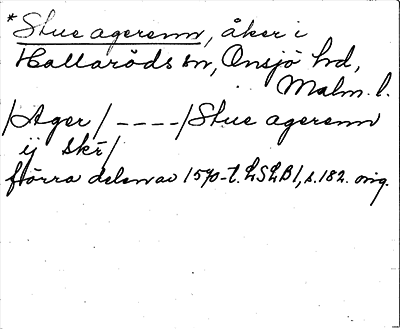 *Stue agerenn, åker i
Hallaröds sn, Onsjö hd,
Malm. l.
/Ager/ ----/Stue agerenn
ij skr/
förra delen av 1570-t. LSLB1, s. 182. orig.